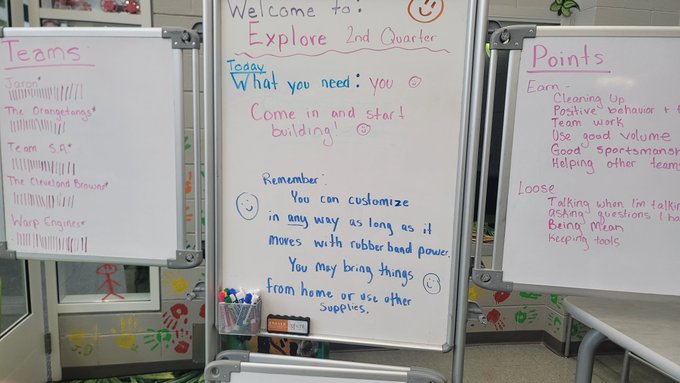 Teams
Jaron
The Orangetangs
Team S.A.
The Cleveland Browns
Warp Engines
Welcome to:
Explore 2nd Quarter
Today
What you need: you
Come in and start
building!
Remember:
You can customize
in any way as long as it
moves with rubber band power.
You may bring things
from home or use other
supplies.
Points
Earn -
Cleaning Up
Positive behavior +
Team work
Use good volume
Good sportsmansh
Helping other teams
Loose
Talking when I'm talking
asking questions I ha
Being mean
Keeping tools